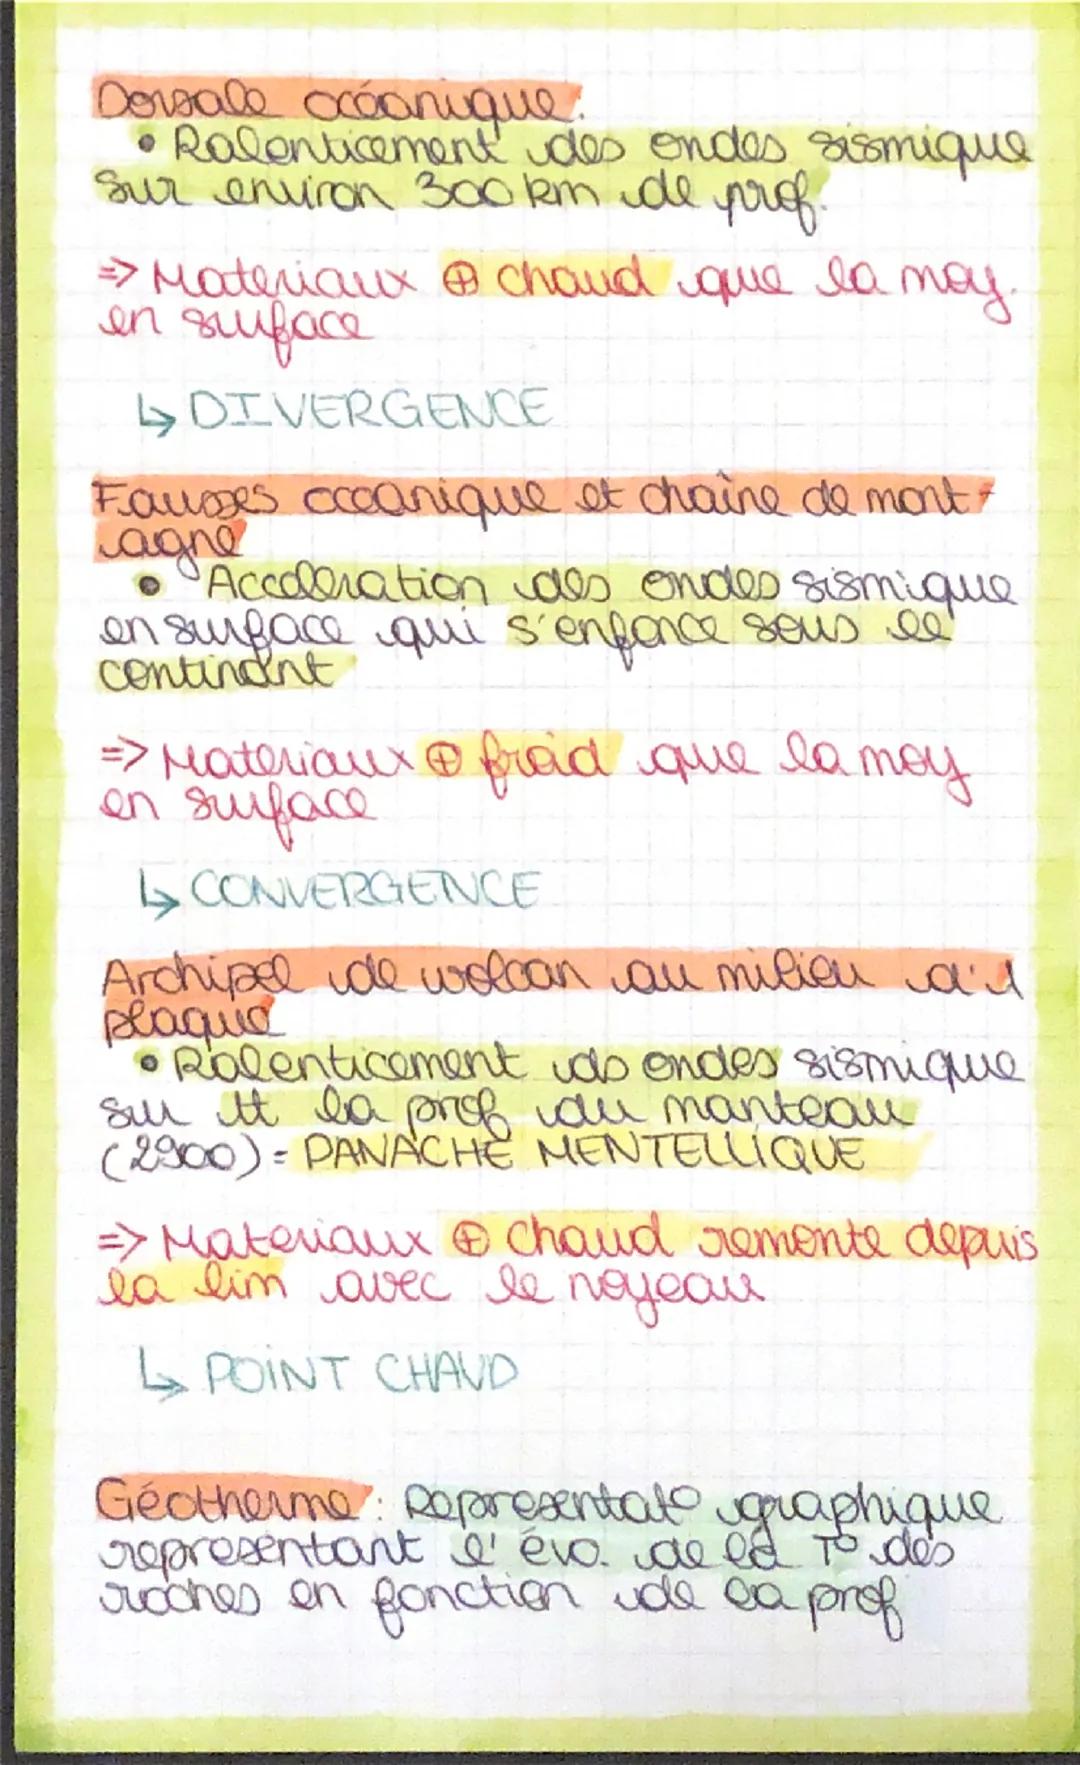 Dorsale océanique:
• Ralenticement des ondes sismique
sur environ 300 km de prof.
=> Materiaux ⊕ chaud que la moy.
en surface
↳ DIVERGENCE
Fausses océanique et chaîne de mont-
agne
• Acceleration des ondes sismique
en surface qui s'enfonce sous le
continent
=> Materiaux ⊕ froid que la moy
en surface
↳ CONVERGENCE
Archipel de volcan au milieu d'1
plaque
• Ralenticement ds ondes sismique
sur tt la prof du manteau
(2900) = PANACHE MENTELLIQUE
=> Materiaux ⊕ chaud remonte depuis
la lim avec le noyeau
↳ POINT CHAUD
Géotherme: Representat° graphique
representant l'évo. de la T° des
roches en fonction de la prof